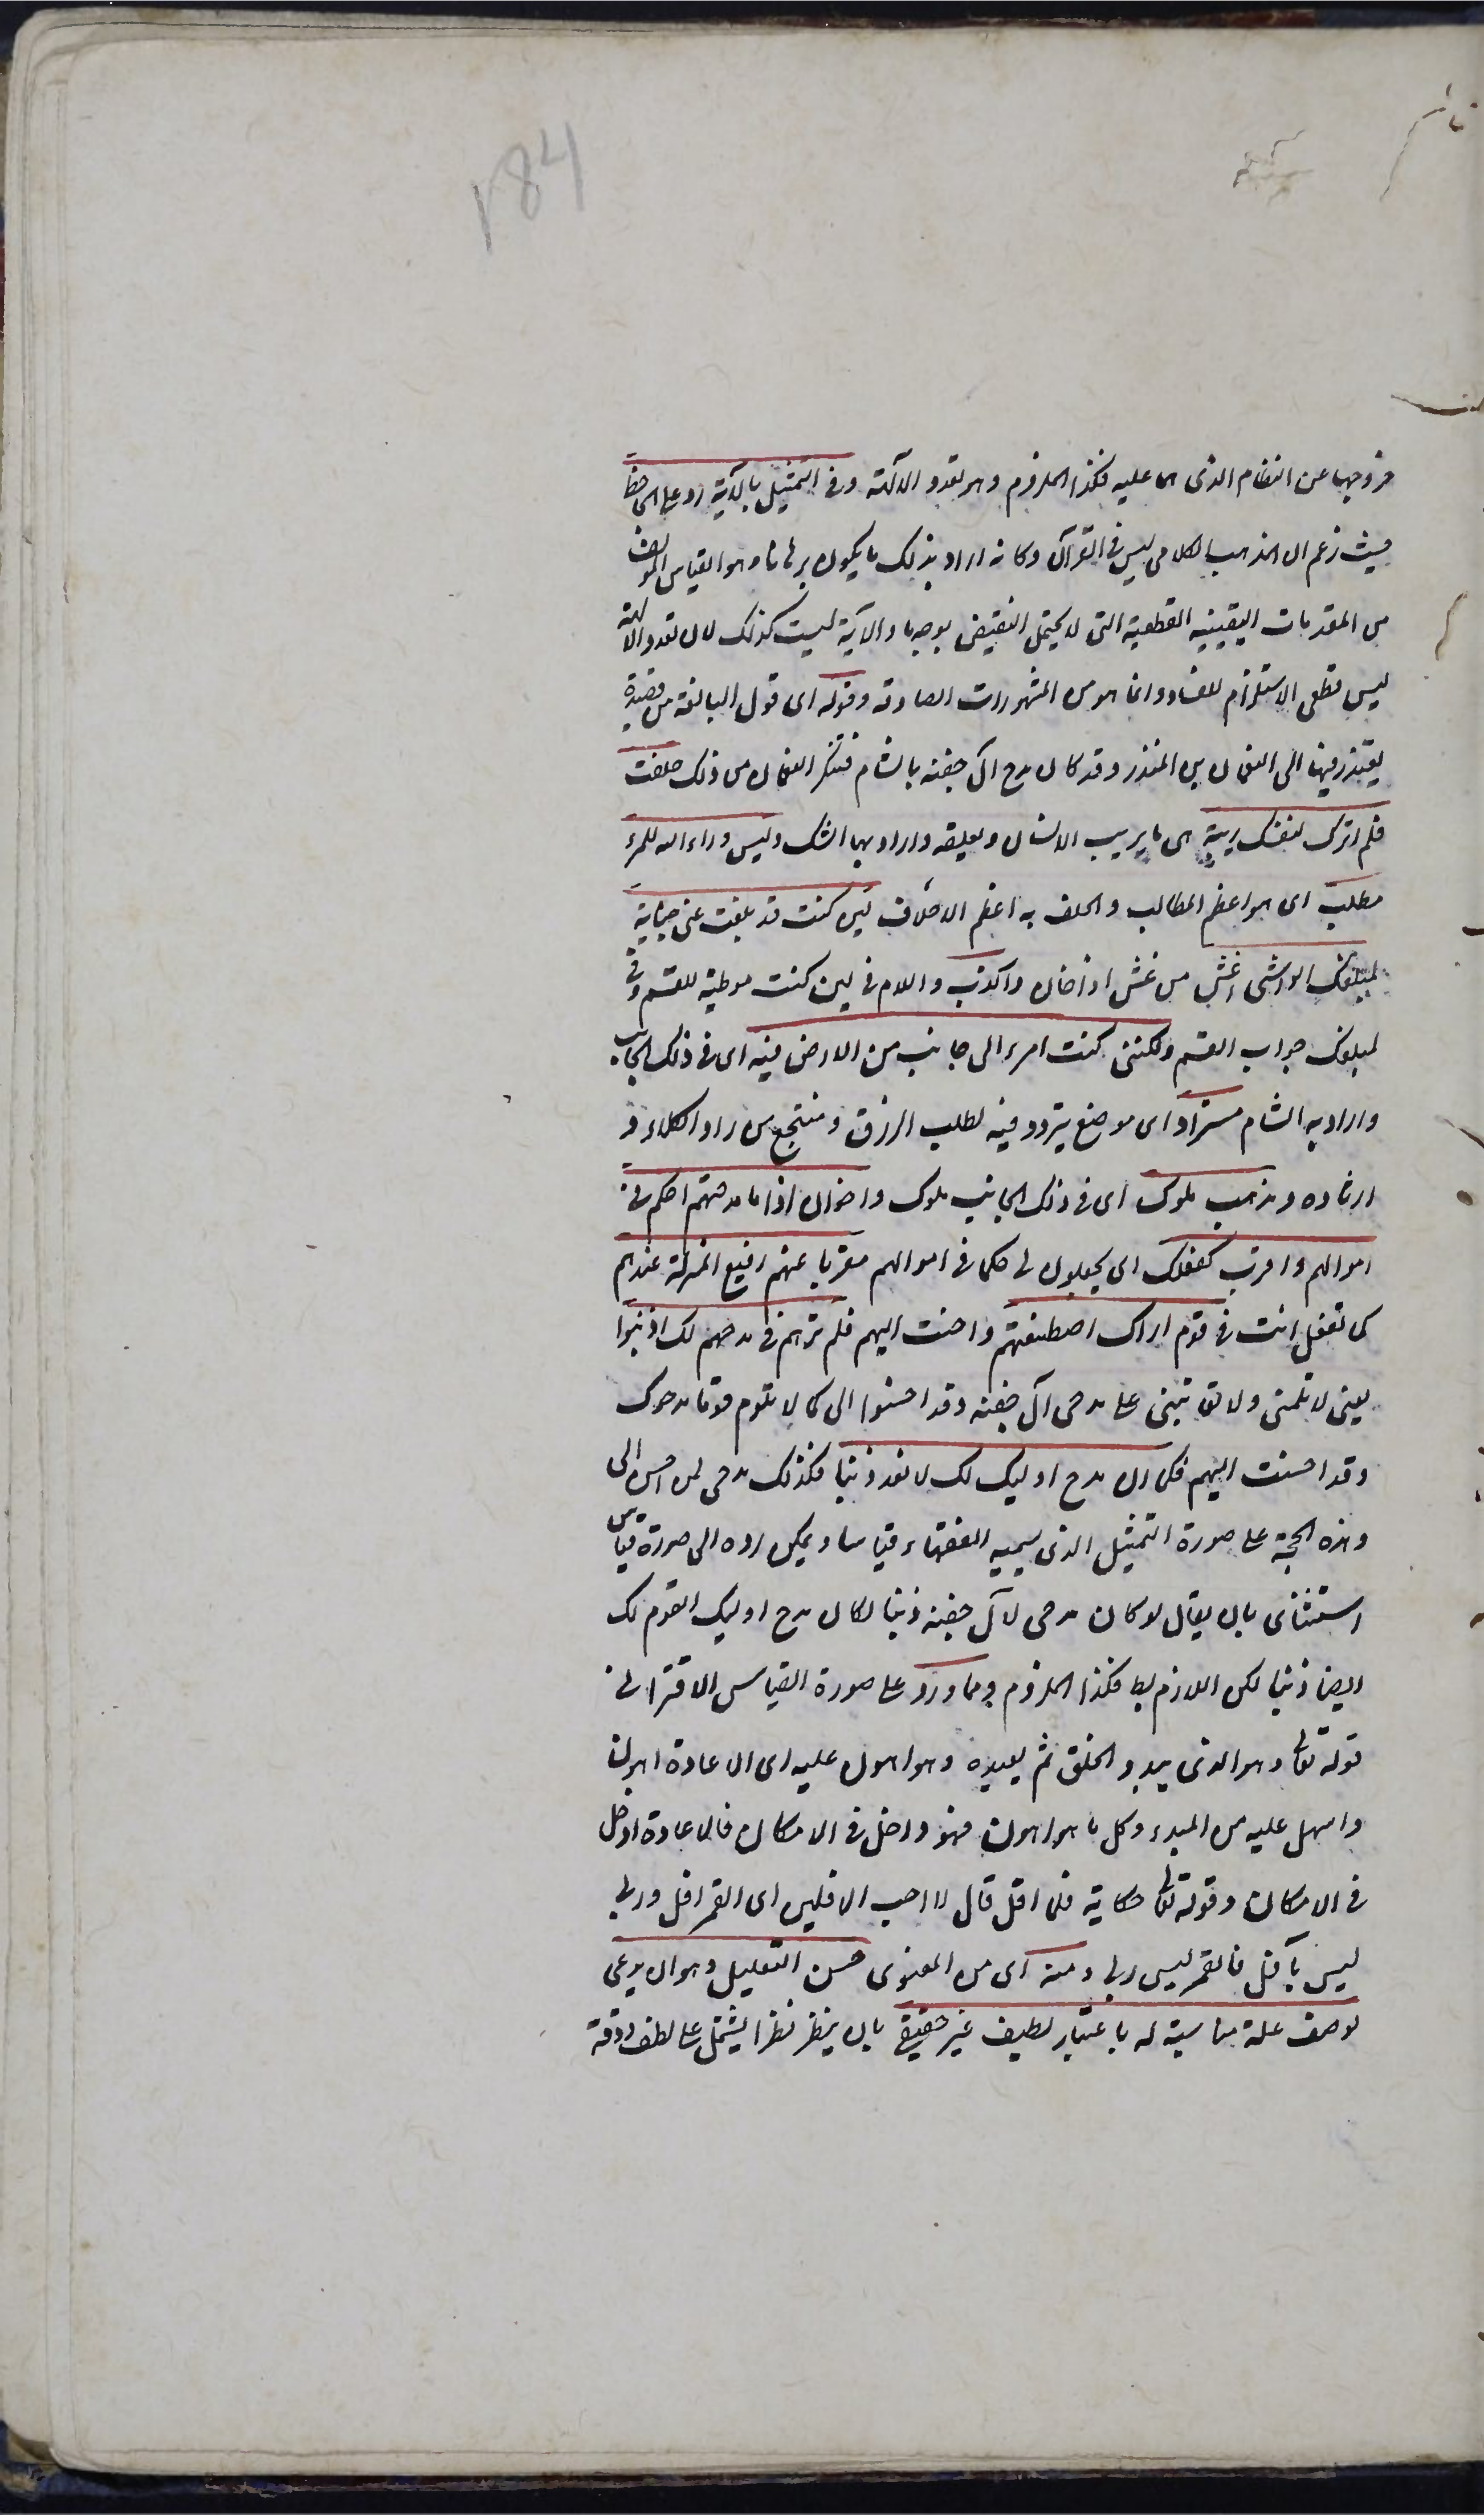 خروجهما عن النظام الذى هما عليه فكذا الملزوم وهو تعدد الآلهة وفى التمثيل بالآية رد على الجاحظ
حيث زعم ان المذهب الكلامى ليس فى القرآن وكانه اراد بذلك ما يكون برهانا وهو القياس المؤلف
من المقدمات اليقينيه القطعية التى لا يحتمل النقيض بوجه ما والآية ليست كذلك لان تعدد الآلهة
ليس قطعى الاستلزام للفساد وانما هو من المشهورات الصادقة وقوله اى قول النابغة من قصيدة
يعتذر فيها الى النعمان بن المنذر وقد كان مدح آل جفنه بالشام فتنكر النعمان من ذلك حلفت
فلم اترك لنفسك ريبة هى ما يريب الانسان ويقلقه واراد بها الشك وليس وراء الله للمرء
مطلب اى هو اعظم المطالب والحلف به اعظم الاحلاف لئن كنت قد بلغت عنى جناية
لمبلغك الواشى اغش من غش اذا خان واكذب واللام فى لين كنت موطئة للقسم وفى
لمبلغك جواب القسم ولكننى كنت امرء الى جانب من الارض فيه اى فى ذلك الجانب
واراد به الشام مستراد اى موضع يتردد فيه لطلب الرزق ومنتجع من راد الكلاء و
ارتاده ومذهب ملوك اى فى ذلك الجانب ملوك واخوان اذا ما مدحتهم احكم فى
اموالهم واقرب كفعلك اى يجعلون لى حكما فى اموالهم مقربا عنهم رفيع المنزلة عندهم
كما تفعل انت فى قوم اراك اصطنعتهم واحسنت اليهم فلم ترهم فى مدحهم لك اذنبوا
يعنى لا تلمنى ولا تعاتبنى على مدحى آل جفنه وقد احسنوا الى كما لا تلوم قوما مدحوك
وقد احسنت اليهم فكما ان مدح اوليك لك لا تعد ذنبا فكذلك مدحى لمن احسن الى
وهذه الحجة على صورة التمثيل الذى يسميه الفقهاء قياسا ويمكن رده الى صورة قياس
استثنائى بان يقال لو كان مدحى لآل جفنه ذنبا لكان مدح اوليك القوم لك
ايضا ذنبا لكن اللازم بط فكذا الملزوم ومما ورد على صورة القياس الاقترانى
قوله تعالى وهو الذى يبدؤ الخلق ثم يعيده وهو اهون عليه اى الاعادة اهون
واسهل عليه من المبدء وكل ما هو اهون فهو داخل فى الامكان فالاعادة ادخل
فى الامكان وقوله تعالى حكاية فلما افل قال لا احب الافلين اى القمر افل وربى
ليس بآفل فالقمر ليس ربى ومنه اى من المعنوى حسن التعليل وهو ان يدعى
لوصف علة مناسبة له باعتبار لطيف غير حقيقى بان ينظر نظرا يشتمل على لطف ودقة